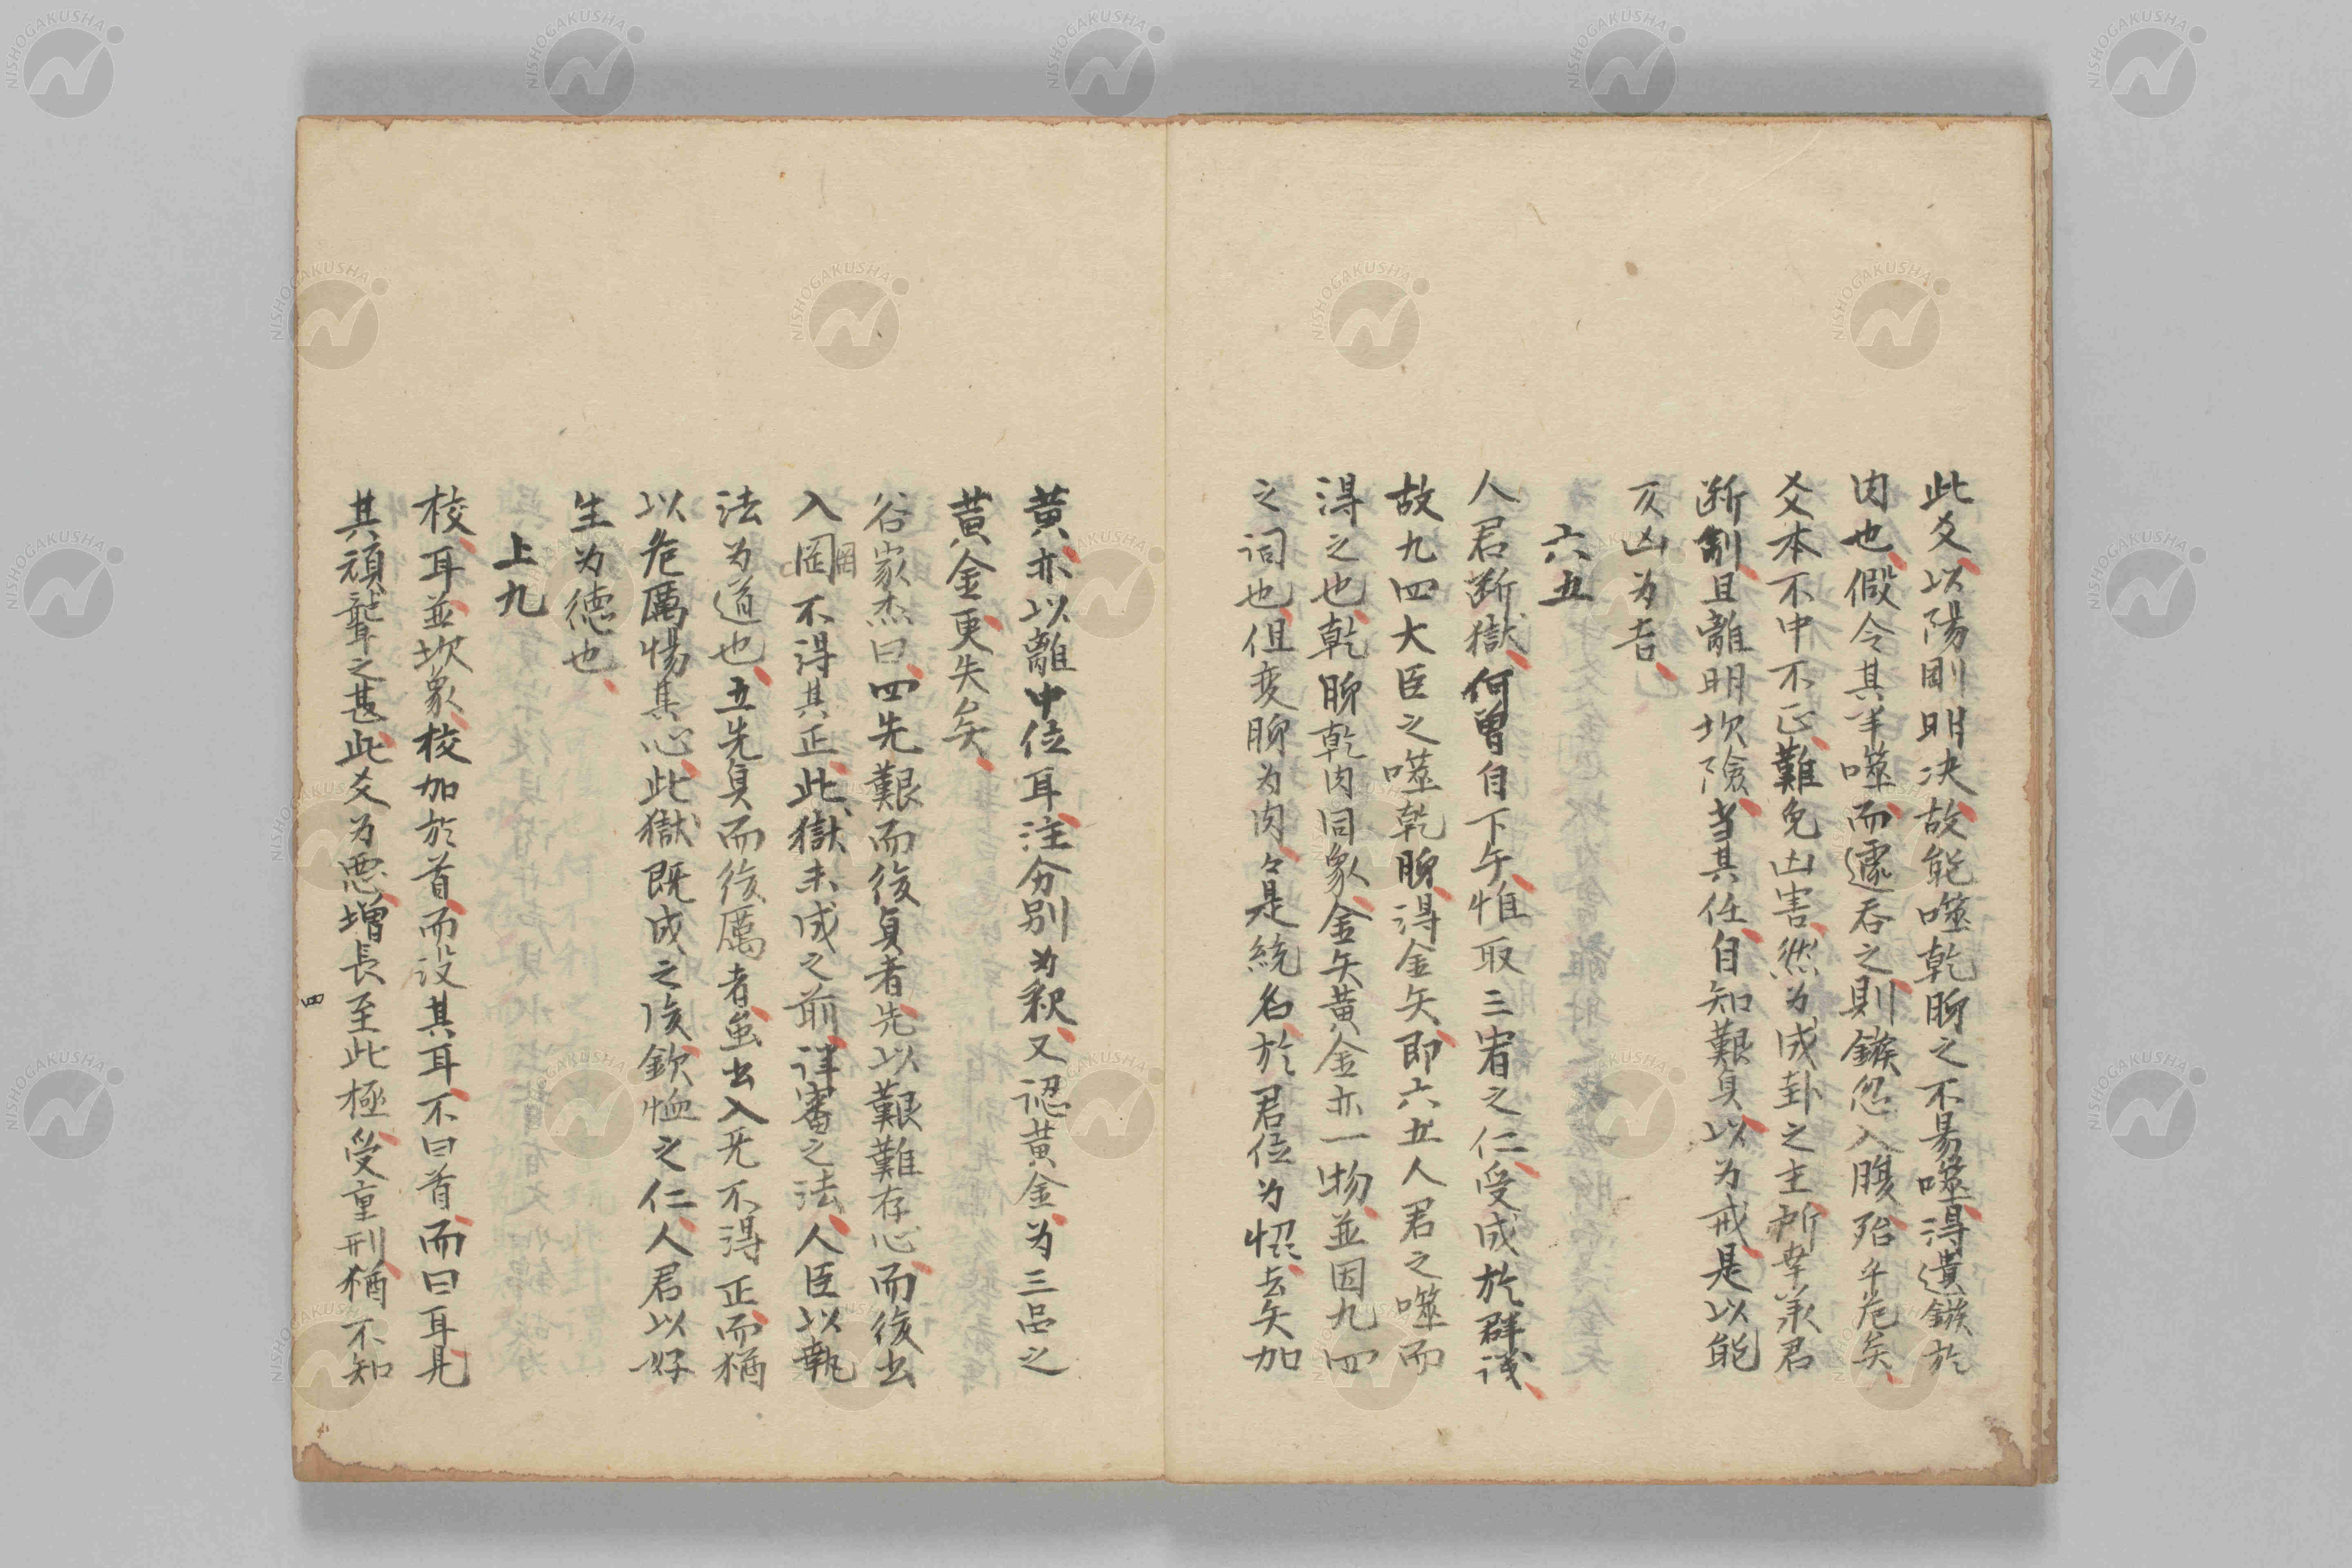 此爻以陽剛明决故能噬乾胏之不易噬得遺鏃於
肉也假令其半噬而遽吞之則鏃忽入腹殆乎危矣
爻本不中不正難免凶害然为成卦之主所幸承君
断制且離明坎険当其任自知艱貞以为戒是以能
反凶为吉
六五
人君断獄何曽自下午惟取三宥之仁受成於群議
故九四大臣之噬乾胏得金矢即六五人君之噬而
得之也乾胏乾肉同象金矢黄金亦一物並因九四
之词也但变胏为肉々是統名於君位为愠去矢加
黄亦以離中位耳注分别为釈又認黄金为三品之
黄金更失矣
谷家杰曰四先艱而後貞者先以艱難存心而後出
入罔不得其正此獄未成之前詳審之法人臣以執
罔
法为道也五先貞而後厲者虽出入无不得正而猶
以危厲惕其心此獄既成之後欽恤之仁人君以好
生为徳也
上九
校耳並坎象校加於首而没其耳不曰首而曰耳見
其頑聾之甚此爻为悪増長至此極受重刑猶不知
四
NISHOGAKUSHA